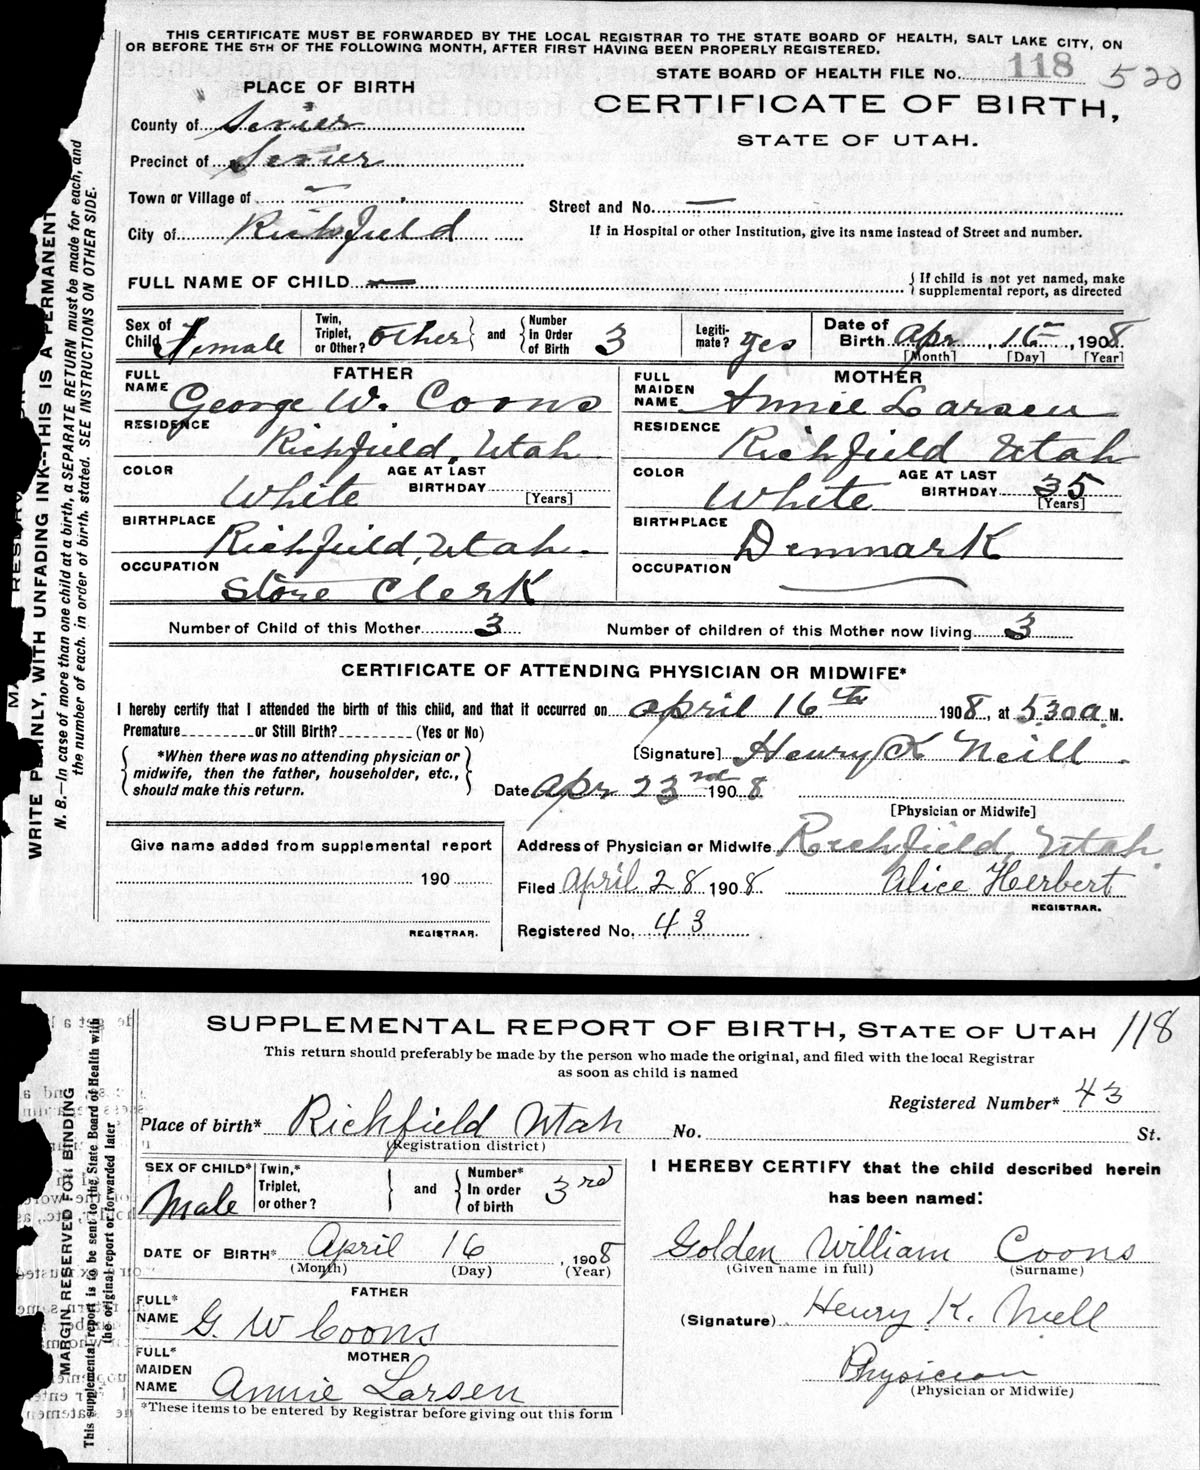 THIS CERTIFICATE MUST BE FORWARDED BY THE LOCAL REGISTRAR TO THE STATE BOARD OF HEALTH, SALT LAKE CITY, ON
OR BEFORE THE 5TH OF THE FOLLOWING MONTH, AFTER FIRST HAVING BEEN PROPERLY REGISTERED.
STATE BOARD OF HEALTH FILE No. 118 520
PLACE OF BIRTH
CERTIFICATE OF BIRTH,
STATE OF UTAH.
County of Sevier
Precinct of Sevier
Town or Village of —
Street and No. —
City of Richfield
If in Hospital or other Institution, give its name instead of Street and number.
FULL NAME OF CHILD — { If child is not yet named, make
supplemental report, as directed
Sex of Child Female
Twin, Triplet, or Other? other and Number In Order of Birth 3
Legitimate? yes
Date of Birth Apr 16 —, 1908
[Month] [Day] [Year]
FATHER
FULL NAME George W. Coons
RESIDENCE Richfield, Utah.
COLOR White
AGE AT LAST BIRTHDAY [Years]
BIRTHPLACE Richfield, Utah.
OCCUPATION Store Clerk
MOTHER
FULL MAIDEN NAME Annie Larsen
RESIDENCE Richfield Utah
COLOR White
AGE AT LAST BIRTHDAY 35 [Years]
BIRTHPLACE Denmark
OCCUPATION —
Number of Child of this Mother 3
Number of children of this Mother now living 3
CERTIFICATE OF ATTENDING PHYSICIAN OR MIDWIFE*
I hereby certify that I attended the birth of this child, and that it occurred on April 16th 1908, at 5.30 a. M.
Premature or Still Birth? (Yes or No)
*When there was no attending physician or
midwife, then the father, householder, etc.,
should make this return.
[Signature] Henry K Neill.
Date Apr 23rd 1908
[Physician or Midwife]
Give name added from supplemental report
190
REGISTRAR.
Address of Physician or Midwife Richfield, Utah.
Filed April 28 1908 Alice Herbert
REGISTRAR.
Registered No. 43
WRITE PLAINLY, WITH UNFADING INK--THIS IS A PERMANENT
N. B.—In case of more than one child at a birth, a SEPARATE RETURN must be made for each, and
the number of each, in order of birth, stated. SEE INSTRUCTIONS ON OTHER SIDE.
SUPPLEMENTAL REPORT OF BIRTH, STATE OF UTAH 118
This return should preferably be made by the person who made the original, and filed with the local Registrar
as soon as child is named
Registered Number* 43
Place of birth* Richfield Utah No. St.
(Registration district)
SEX OF CHILD* Male
Twin,* Triplet, or other? and Number* In order of birth 3rd
DATE OF BIRTH* April 16, 1908
(Month) (Day) (Year)
FATHER
FULL* NAME G. W Coons
MOTHER
FULL* MAIDEN NAME Annie Larsen
*These items to be entered by Registrar before giving out this form
I HEREBY CERTIFY that the child described herein
has been named:
Golden William Coons
(Given name in full) (Surname)
(Signature) Henry K. Neill
Physician
(Physician or Midwife)
MARGIN RESERVED FOR BINDING
This supplemental report is to be sent to the State Board of Health with
the original report or forwarded later